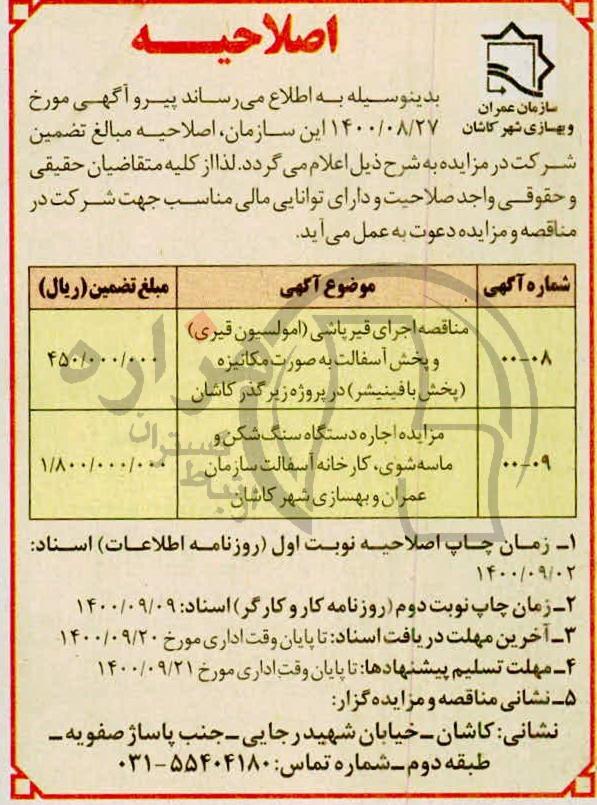 اصلاحیه
سازمان عمران
و بهسازی شهر کاشان
بدینوسیله به اطلاع می‌رساند پیرو آگهی مورخ
۱۴۰۰/۰۸/۲۷ این سازمان، اصلاحیه مبالغ تضمین
شرکت در مزایده به شرح ذیل اعلام می گردد. لذا از کلیه متقاضیان حقیقی
و حقوقی واجد صلاحیت و دارای توانایی مالی مناسب جهت شرکت در
مناقصه و مزایده دعوت به عمل می آید.
شماره آگهی موضوع آگهی مبلغ تضمین (ریال)
مناقصه اجرای قیرپاشی (امولسیون قیری)
۰۰-۰۸ و پخش آسفالت به صورت مکانیزه ۴۵۰/۰۰۰/۰۰۰
(پخش با فینیشر) در پروژه زیرگذر کاشان
مزایده اجاره دستگاه سنگ شکن و
۰۰-۰۹ ماسه شوی، کارخانه آسفالت سازمان ۱/۸۰۰/۰۰۰/۰۰۰
عمران و بهسازی شهر کاشان
۱ـ زمان چاپ اصلاحیه نوبت اول (روزنامه اطلاعات) اسناد:
۱۴۰۰/۰۹/۰۲
۲ـ زمان چاپ نوبت دوم (روزنامه کار و کارگر) اسناد: ۱۴۰۰/۰۹/۰۹
۳ـ آخرین مهلت دریافت اسناد: تا پایان وقت اداری مورخ ۱۴۰۰/۰۹/۲۰
۴ـ مهلت تسلیم پیشنهادها: تا پایان وقت اداری مورخ ۱۴۰۰/۰۹/۲۱
۵ـ نشانی مناقصه و مزایده گزار:
نشانی: کاشان ـ خیابان شهید رجایی ـ جنب پاساژ صفویه ـ
طبقه دوم ـ شماره تماس: ۵۵۴۰۴۱۸۰-۰۳۱